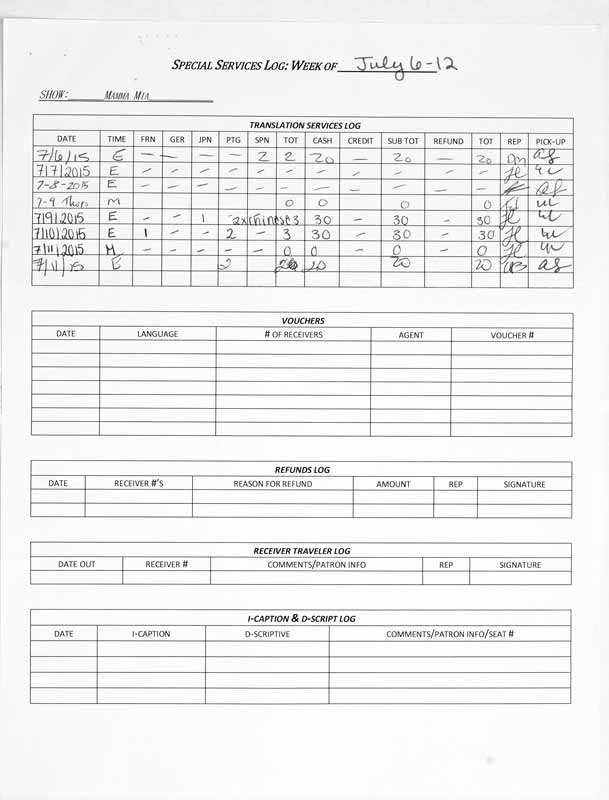 SPECIAL SERVICES LOG: WEEK OF July 6-12
SHOW: MAMMA MIA
TRANSLATION SERVICES LOG
DATE TIME FRN GER JPN PTG SPN TOT CASH CREDIT SUB TOT REFUND TOT REP PICK-UP
7/6/15 E — — - — 2 2 20 — 20 — 20 DM
7/7/2015 E - - - - - - - - - - - JL
7-8-2015 E - - - - - - - - - - -
7-9 Thurs M 0 0 0 0
7/9/2015 E - - 1 2xchinese 3 30 - 30 - 30 JL
7/10/2015 E 1 - - 2 - 3 30 - 30 - 30 JL
7/11/2015 M - - - - - 0 0 - 0 - 0 JL
7/11/15 E 2 20 20 20
VOUCHERS
DATE LANGUAGE # OF RECEIVERS AGENT VOUCHER #
REFUNDS LOG
DATE RECEIVER #'S REASON FOR REFUND AMOUNT REP SIGNATURE
RECEIVER TRAVELER LOG
DATE OUT RECEIVER # COMMENTS/PATRON INFO REP SIGNATURE
I-CAPTION & D-SCRIPT LOG
DATE I-CAPTION D-SCRIPTIVE COMMENTS/PATRON INFO/SEAT #